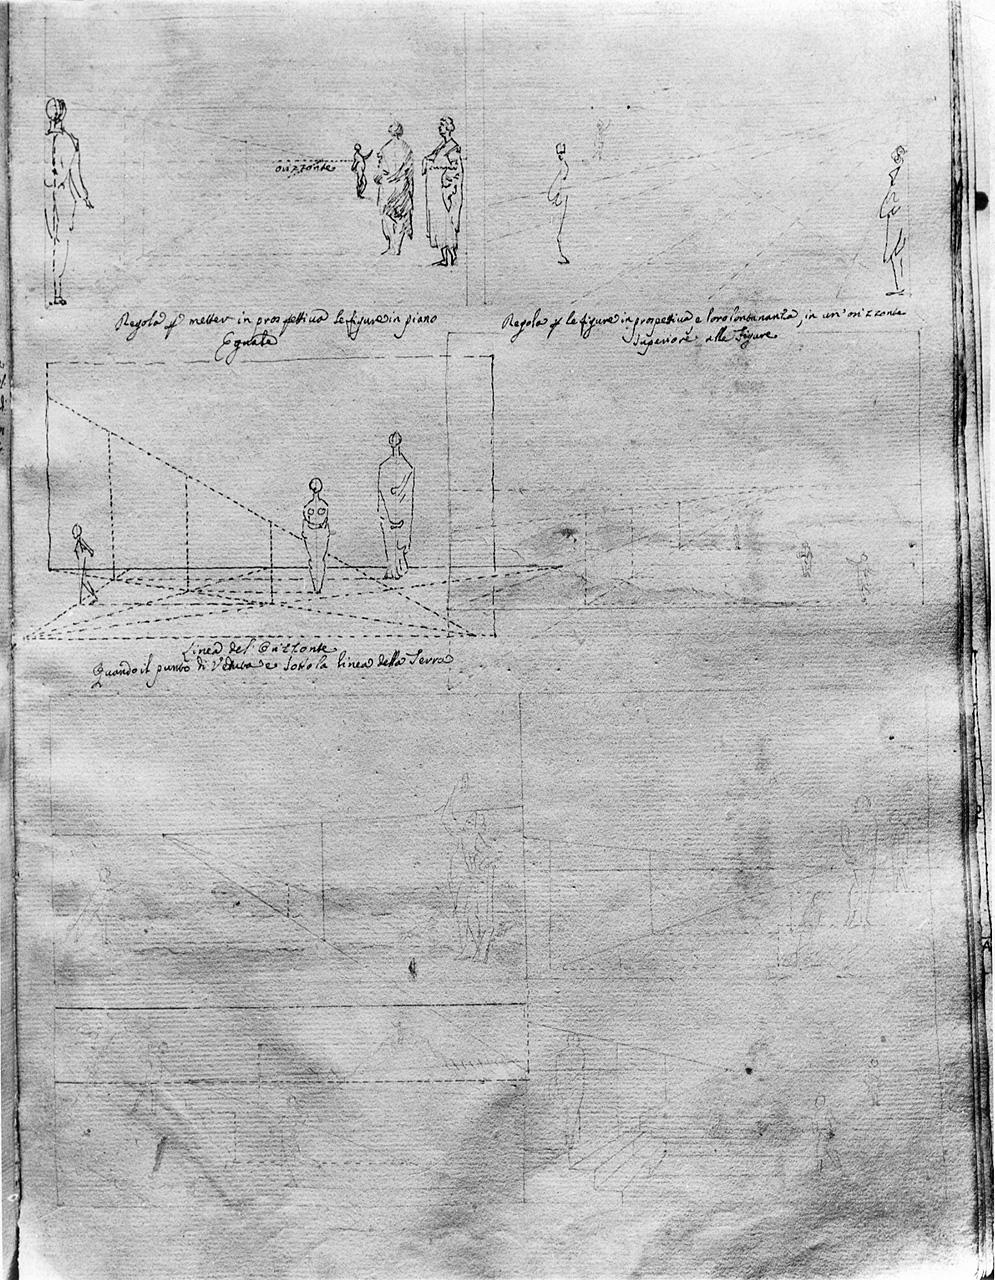 orizzonte
Regola p metter in prospettiva le figure in piano
Eguale
Regola p le figure in prospettiva e loro lontananza, in un'orizzonte
superiore alle figure
Linea del Orizzonte
Quando il punto di Veduta e sotto la linea della Terra